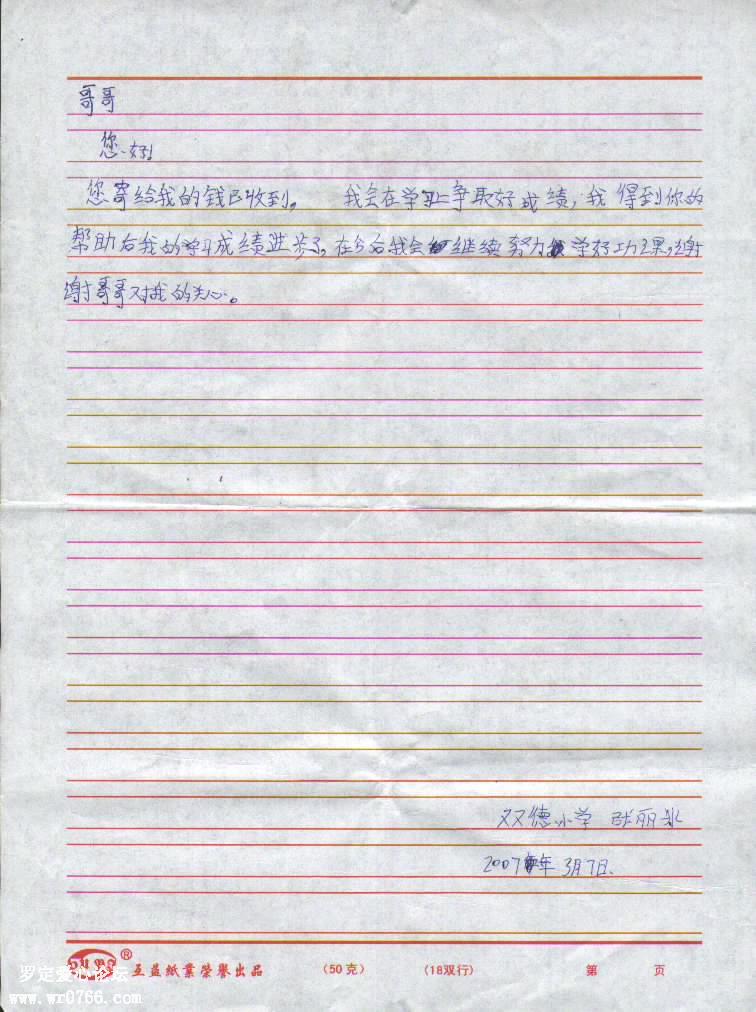 哥哥
您好!
您寄给我的钱已收到。 我会在学习上争取好成绩,我得到你的
帮助后我的学习成绩进步了,在今后我会继续努力学好功课,谢
谢哥哥对我的关心。
双德小学 邱丽
2007年3月7日.
互益紙業榮譽出品 (50克) (18双行) 第 页
罗定爱心论坛
www.wr0766.com